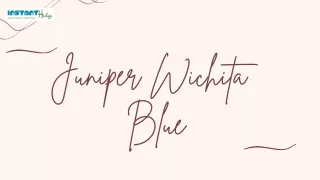 INSTANT Hedge
Juniper Wichita
Blue